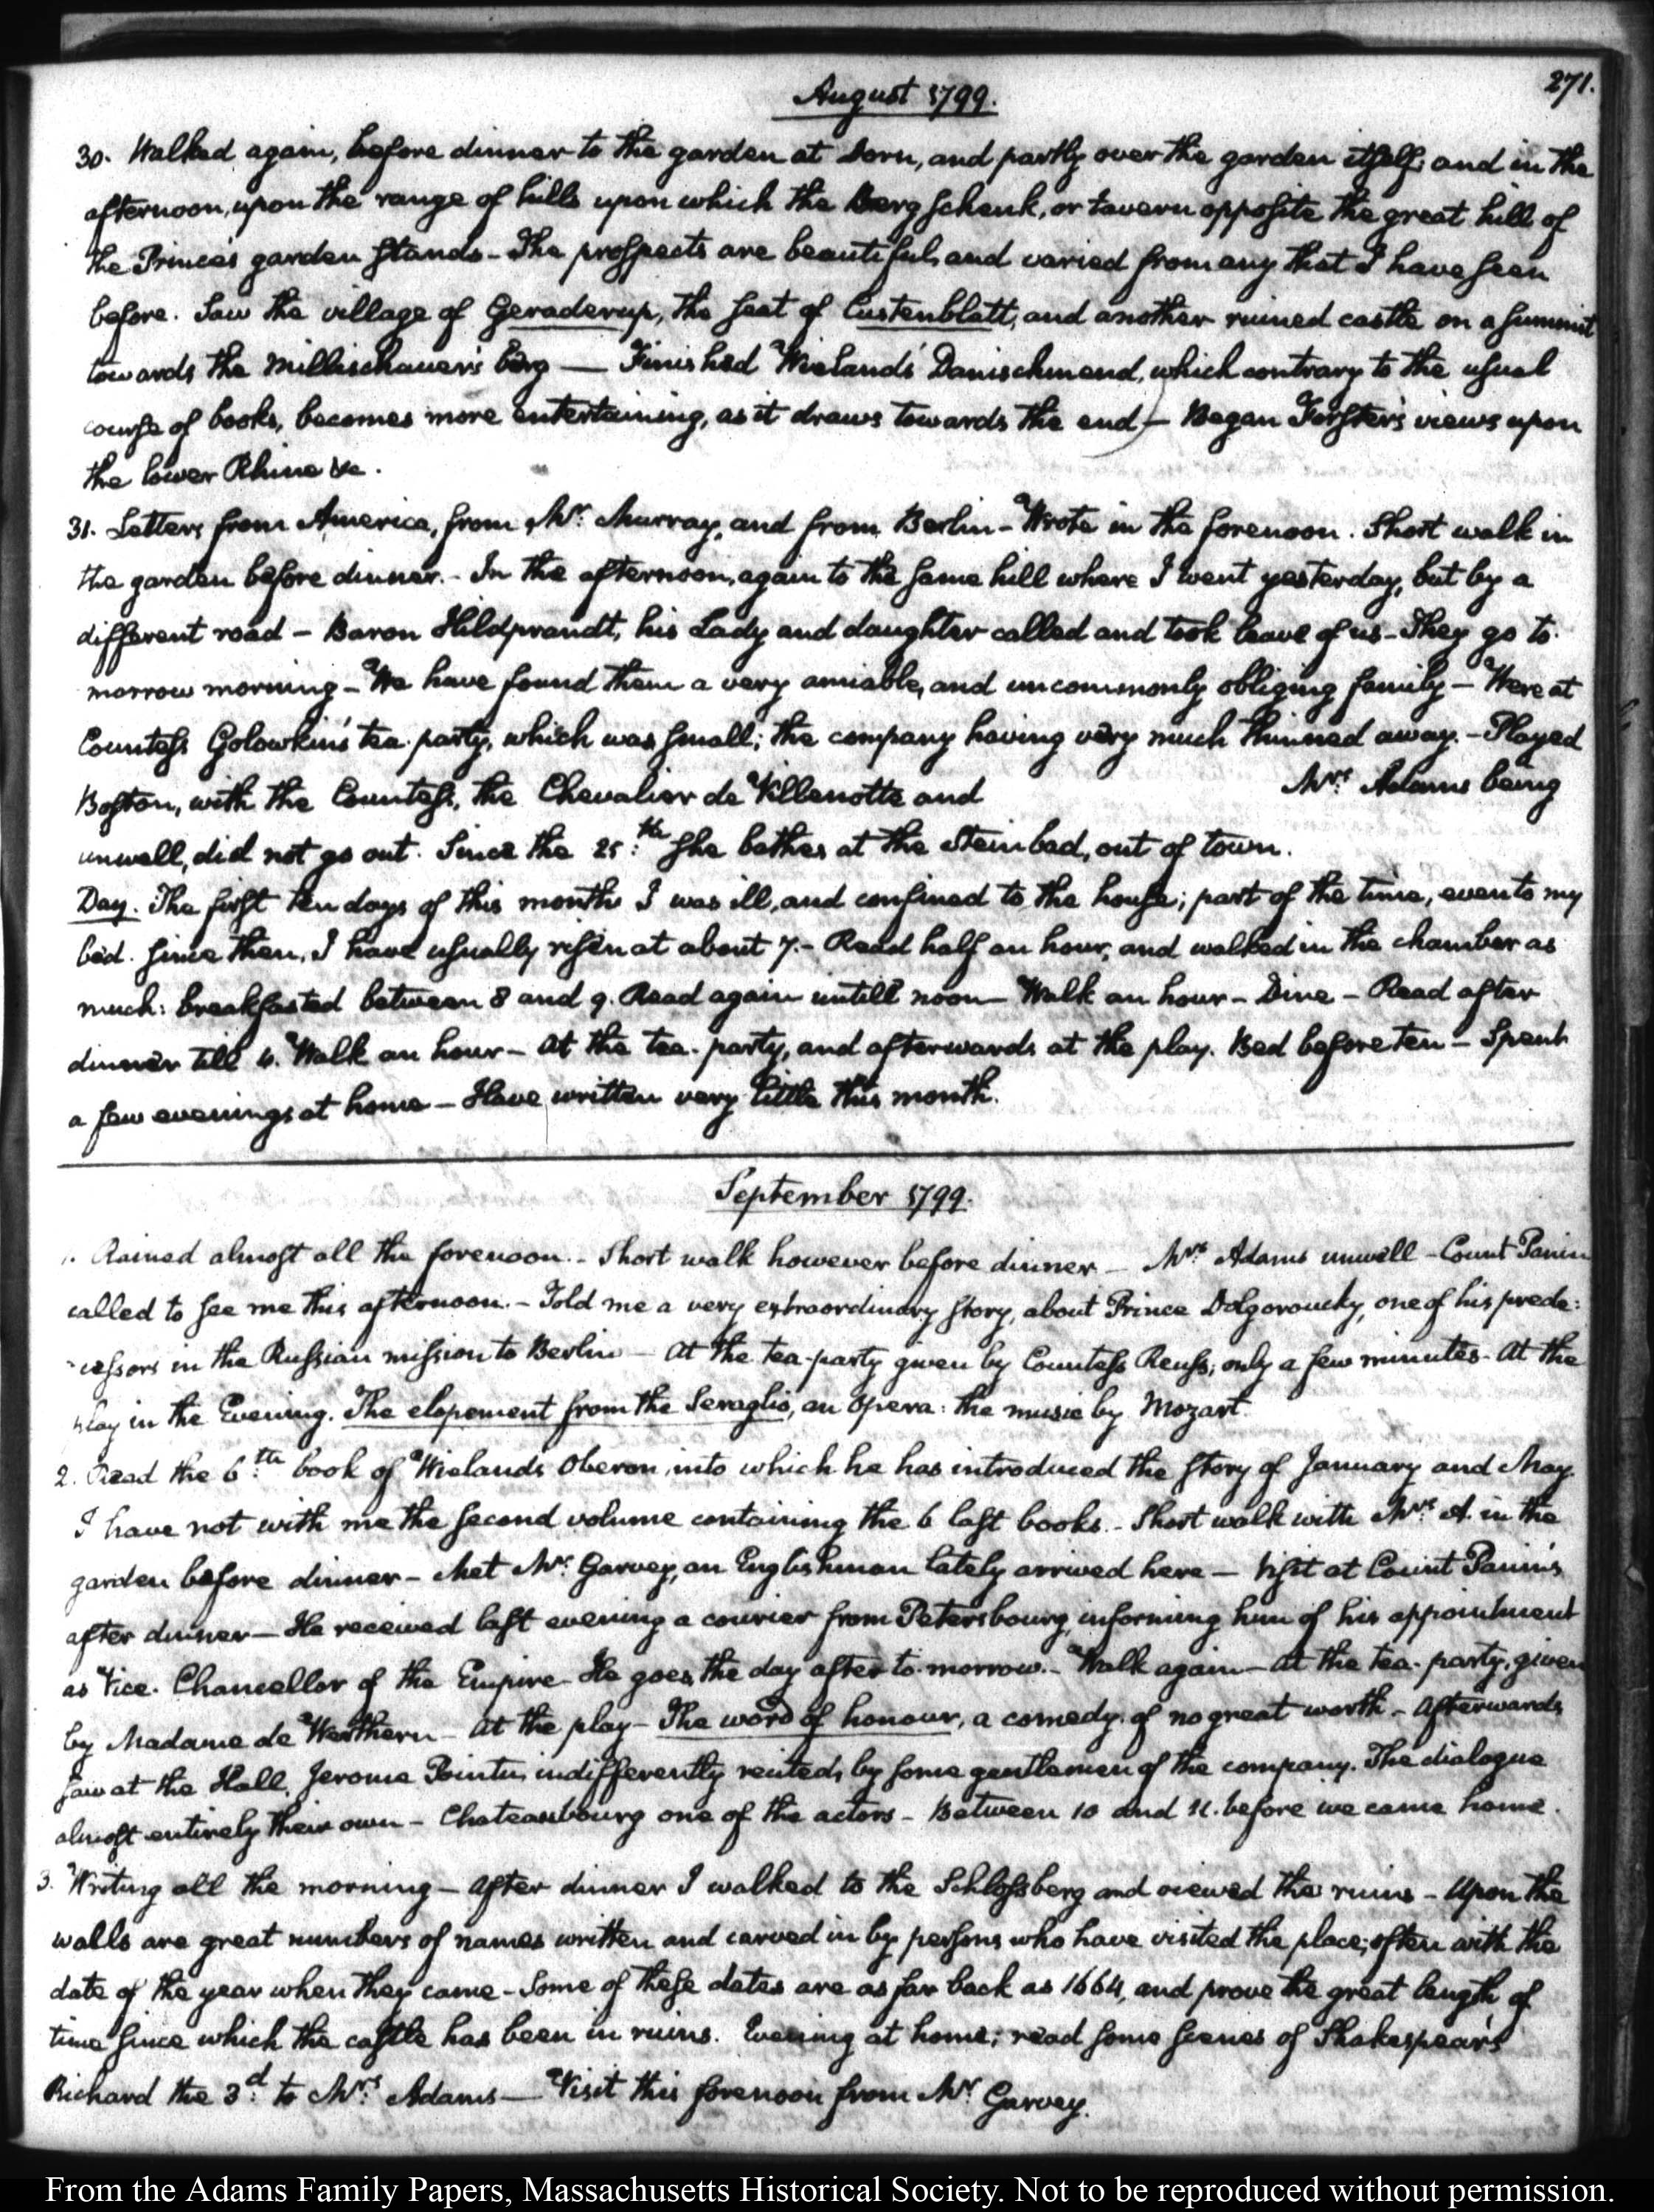 271.
August 1799.
30. Walked again, before dinner to the garden at Dorn, and partly over the garden itself; and in the
afternoon, upon the range of hills upon which the Bergschenk, or tavern opposite the great hill of
the Prince's garden stands - The prospects are beautiful, and varied from any that I have seen
before. Saw the village of Geraderup, the seat of Custenblatt, and another ruined castle on a summit
towards the Millischauer's berg — Finished Wieland's Danischmend, which contrary to the usual
course of books, becomes more entertaining, as it draws towards the end — Began Forster's views upon
the lower Rhine &c.
31. Letters from America, from Mr. Murray, and from Berlin - Wrote in the forenoon. Short walk in
the garden before dinner. - In the afternoon, again to the same hill where I went yesterday, but by a
different road - Baron Hildprandt, his Lady and daughter called and took leave of us - They go to-
morrow morning - We have found them a very amiable, and uncommonly obliging family - Were at
Countess Golowkin's tea-party, which was small; the company having very much thinned away. - Played
Boston, with the Countess, the Chevalier de Villenotte and Mrs. Adams being
unwell, did not go out. Since the 25th. she bathes at the Steinbad, out of town.
Day. The first ten days of this month I was ill, and confined to the house; part of the time, even to my
bed. Since then, I have usually risen at about 7. - Read half an hour, and walked in the chamber as
much: breakfasted between 8 and 9. Read again untill noon - Walk an hour - Dine - Read after
dinner till 6. Walk an hour - At the tea-party, and afterwards at the play. Bed before ten - Spent
a few evenings at home - Have written very little this month.
September 1799.
1. Rained almost all the forenoon. - Short walk however before dinner - Mrs. Adams unwell - Count Panin
called to see me this afternoon. - Told me a very extraordinary story, about Prince Dolgoroucky, one of his prede:
cessors in the Russian mission to Berlin - At the tea-party given by Countess Reuss; only a few minutes - At the
play in the Evening. The elopement from the Seraglio, an Opera: the music by Mozart.
2. Read the 6th. book of Wieland's Oberon, into which he has introduced the story of January and May.
I have not with me the second volume containing the 6 last books. - Short walk with Mrs. A. in the
garden before dinner - Met Mr. Garvey, an Englishman lately arrived here - Visit at Count Panin's
after dinner - He received last evening a courier from Petersbourg, informing him of his appointment
as Vice-Chancellor of the Empire - He goes the day after to-morrow. - Walk again - At the tea-party, given
by Madame de Werthern - At the play - The word of honour, a comedy of no great worth - Afterwards
saw at the Hall, Jerome Pointu, indifferently recited, by some gentlemen of the company. The dialogue
almost entirely their own - Chateaubourg one of the actors - Between 10 and 11. before we came home.
3. Writing all the morning - After dinner I walked to the Schlossberg and viewed the ruins - Upon the
walls are great numbers of names written and carved in by persons who have visited the place; often with the
date of the year when they came - Some of these dates are as far back as 1664, and prove the great length of
time since which the castle has been in ruins. Evening at home; read some scenes of Shakespear's
Richard the 3d. to Mrs. Adams - Visit this forenoon from Mr. Garvey.
From the Adams Family Papers, Massachusetts Historical Society. Not to be reproduced without permission.